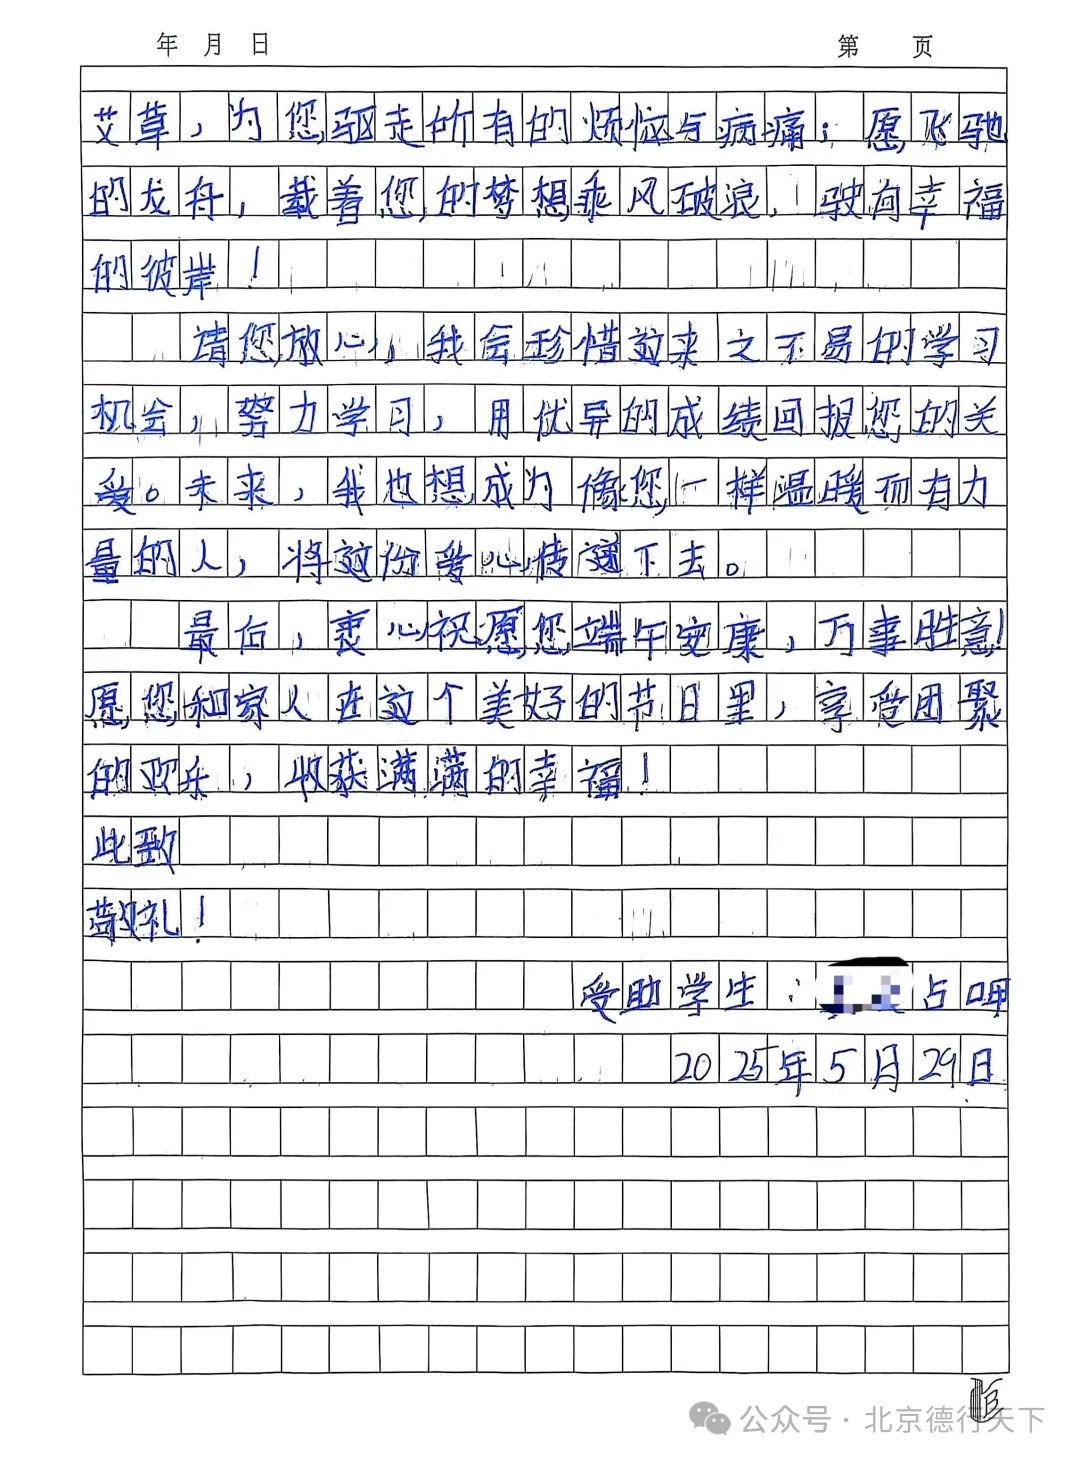 年 月 日 第 页
艾草，为您驱走所有的烦恼与病痛；愿飞驰
的龙舟，载着您的梦想乘风破浪，驶向幸福
的彼岸！
请您放心，我会珍惜这来之不易的学习
机会，努力学习，用优异的成绩回报您的关
爱。未来，我也想成为像您一样温暖而有力
量的人，将这份爱心传递下去。
最后，衷心祝愿您端午安康，万事胜意！
愿您和家人在这个美好的节日里，享受团聚
的欢乐，收获满满的幸福！
此致
敬礼！
受助学生：占呷
2025年5月29日
公众号·北京德行天下